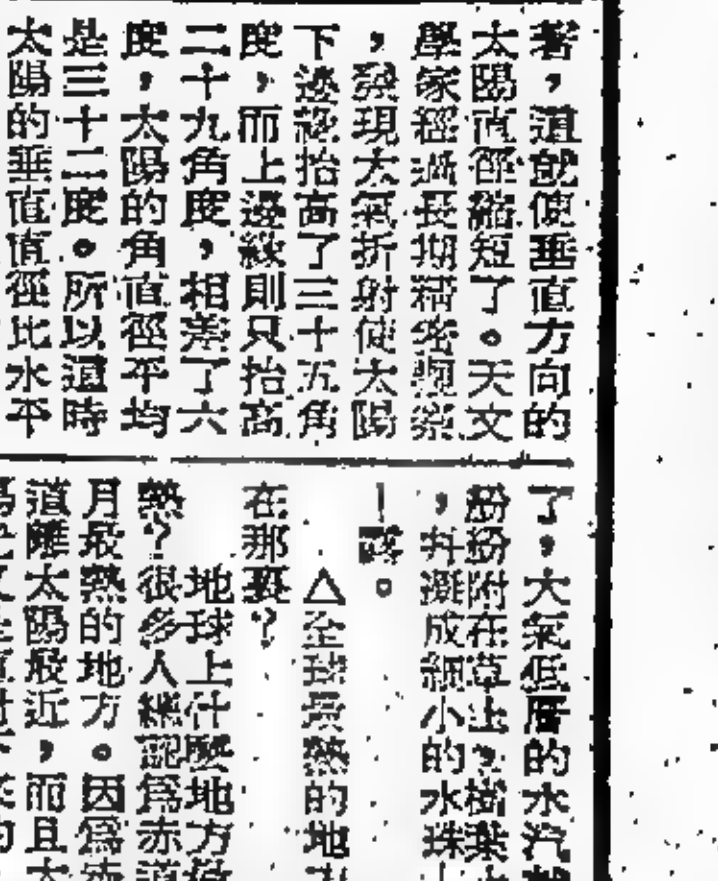 著，這就使垂直方向的
太陽直徑縮短了。天文
學家經過長期精密觀察
，發現大氣折射使太陽
下邊緣抬高了三十五角
度，而上邊緣則只抬高
二十九角度，相差了六
度，太陽的角直徑平均
是三十二度。所以這時
太陽的垂直直徑比水平
了，大氣低層的水汽就
紛紛附在草上，樹葉上
，幷凝成細小的水珠—
—露。
△全球最熱的地方
在那裏？
地球上什麼地方最
熱？很多人總認爲赤道
月最熱的地方。因爲赤
道離太陽最近，而且太